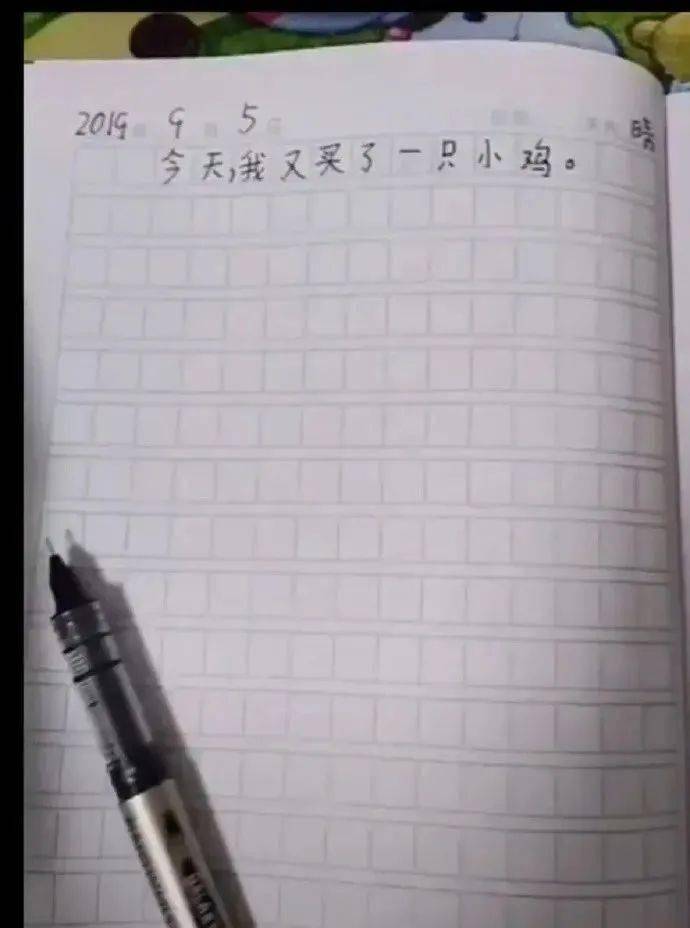 2019 9 5 晴
今天,我又买了一只小鸡。